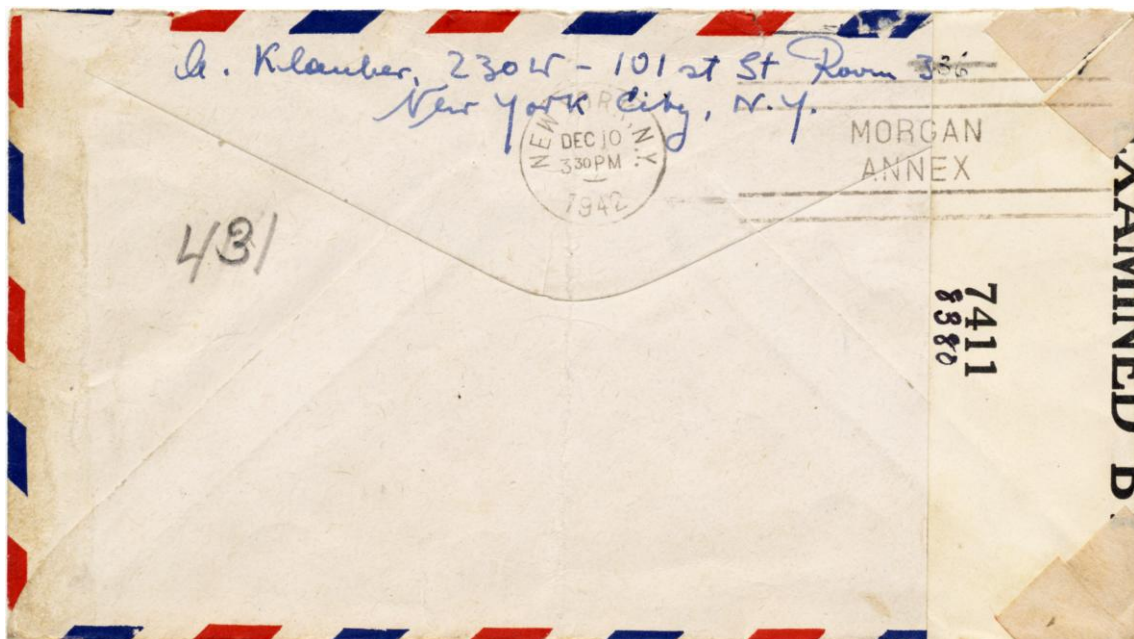 Klauber, 230 W - 101 st St Room 336
New York City, N.Y.
NEW YORK, N.Y.
DEC 10
3 30 PM
1942
MORGAN
ANNEX
431
EXAMINED B
7411
8380